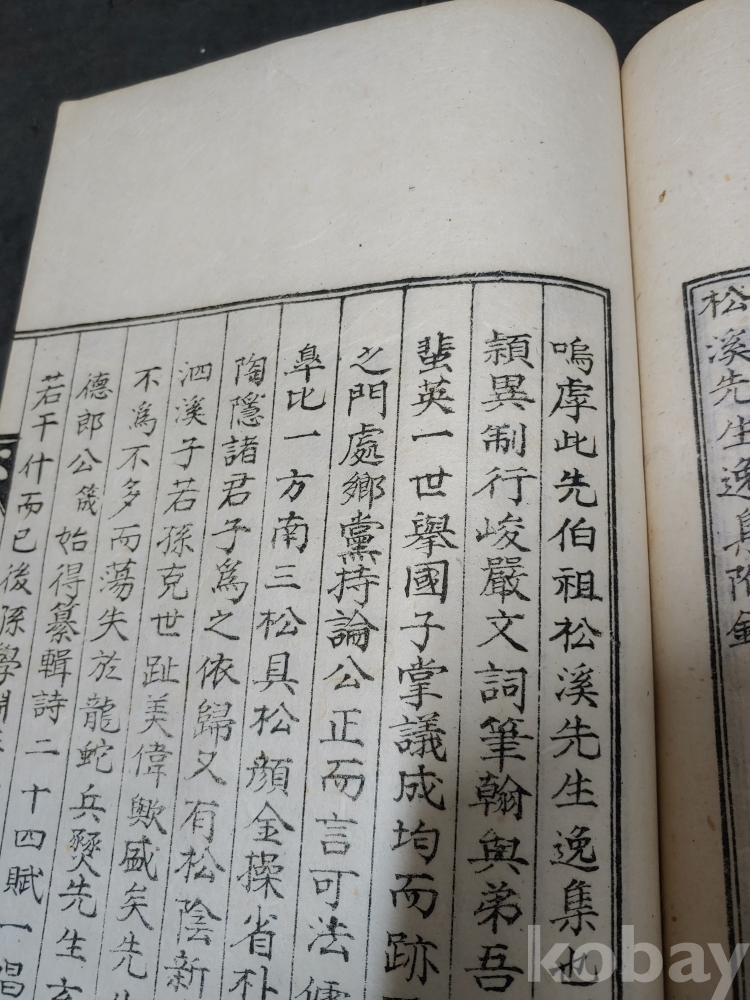 松溪先生逸集附錄
嗚虖此先伯祖松溪先生逸集也
頴異制行峻嚴文詞筆翰與弟吾
蜚英一世擧國子掌議成均而跡
之門處鄉黨持論公正而言可法
臯比一方南三松具松顔金操省朴
陶隱諸君子爲之依歸又有松陰新
泗溪子若孫克世趾美偉歟盛矣先
不爲不多而蕩失於龍蛇兵燹先生
德郎公箴始得纂輯詩二十四賦一
若干什而已後孫學
kobay